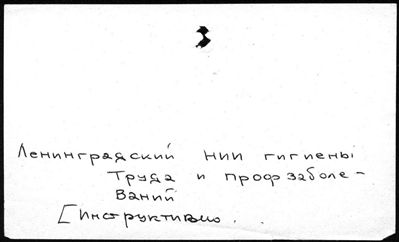 Ленинградский НИИ гигиены
труда и профзаболе-
ваний
[Инструктивно.